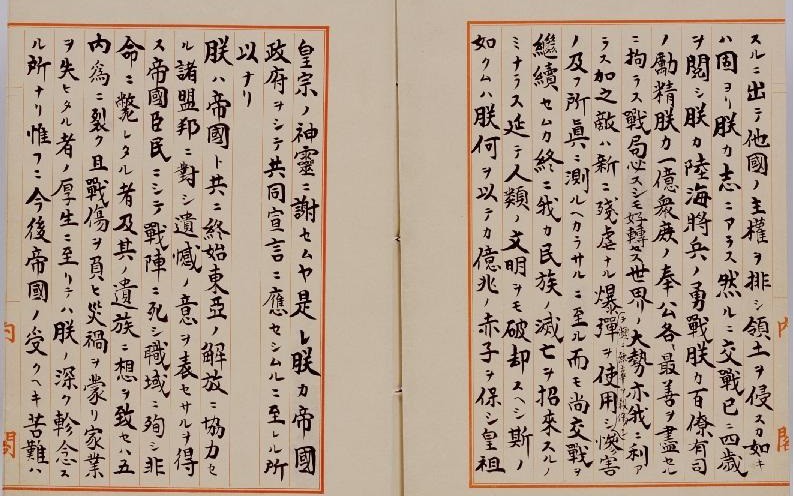 スルニ出テ他國ノ主權ヲ排シ領土ヲ侵スカ如キ
ハ固ヨリ朕カ志ニアラス然ルニ交戰已ニ四歳
ヲ閲シ朕カ陸海將兵ノ勇戰朕カ百僚有司
ノ勵精朕カ一億衆庶ノ奉公各〻最善ヲ盡セル
ニ拘ラス戰局必スシモ好轉セス世界ノ大勢亦我ニ利ア
テ頻ニ無辜ヲ殺傷シ
ラス加之敵ハ新ニ殘虐ナル爆彈ヲ使用シ慘害
ノ及フ所眞ニ測ルヘカラサルニ至ル而モ尚交戰ヲ
繼續セムカ終ニ我カ民族ノ滅亡ヲ招來スルノ
ミナラス延テ人類ノ文明ヲモ破却スヘシ斯ノ
如クムハ朕何ヲ以テカ億兆ノ赤子ヲ保シ皇祖
皇宗ノ神靈ニ謝セムヤ是レ朕カ帝國
政府ヲシテ共同宣言ニ應セシムルニ至レル所
以ナリ
朕ハ帝國ト共ニ終始東亞ノ解放ニ協力セ
ル諸盟邦ニ對シ遺憾ノ意ヲ表セサルヲ得
ス帝國臣民ニシテ戰陣ニ死シ職域ニ殉シ非
命ニ斃レタル者及其ノ遺族ニ想ヲ致セハ五
内爲ニ裂ク且戰傷ヲ負ヒ災禍ヲ蒙リ家業
ヲ失ヒタル者ノ厚生ニ至リテハ朕ノ深ク軫念ス
ル所ナリ惟フニ今後帝國ノ受クヘキ苦難ハ
内閣